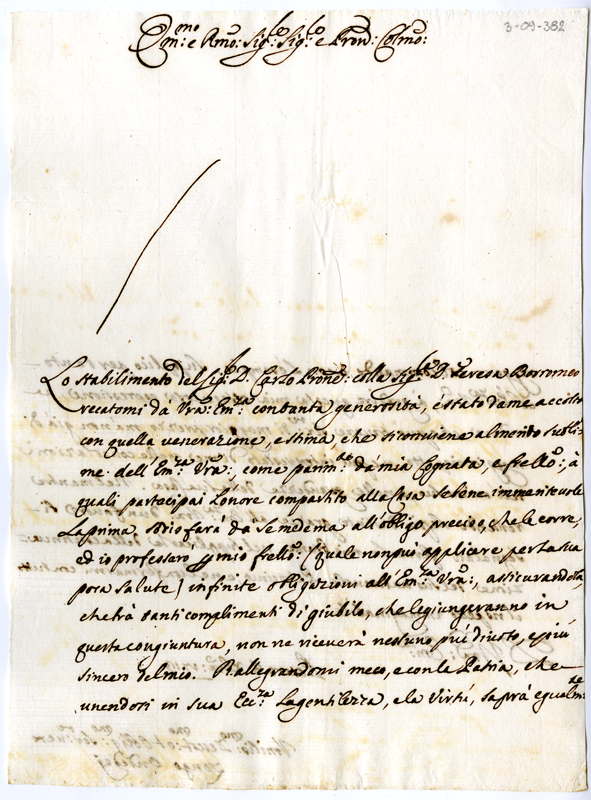 3-09-382
Em:mo e Rmo: Sig:r Sig:r e Pron: Colmo:
Lo stabilimento del Sig:r D. Carlo Prone: colla Sig:ra D. Teresa Borromeo
recatomi dà Vra: Em:za con tanta generosità, è stato da me accolto
con quella venerazione, e stima, che si conviene al merito subli-
me dell'Em:za Vra:, come parim:te dà mia Cognata, e frello:; à
quali partecipai l'onore compartito alla Casa se bene immeritevole
La prima sodisfarà dà se medema all'obligo preciso, che le corre,
ed io professarò p mio frello: (quale non può applicare per la sua
poca salute) infinite obligazioni all'Em:za Vra:, assicurandola,
che trà tanti complimenti di giubilo, che le giungeranno in
questa congiuntura, non ne riceverà nessuno più divoto, e più
sincero del mio. Rallegrandomi meco, e con la Patria, che
unendosi in sua Ecc:za La gentilezza, e la Virtù, saprà egualm:te